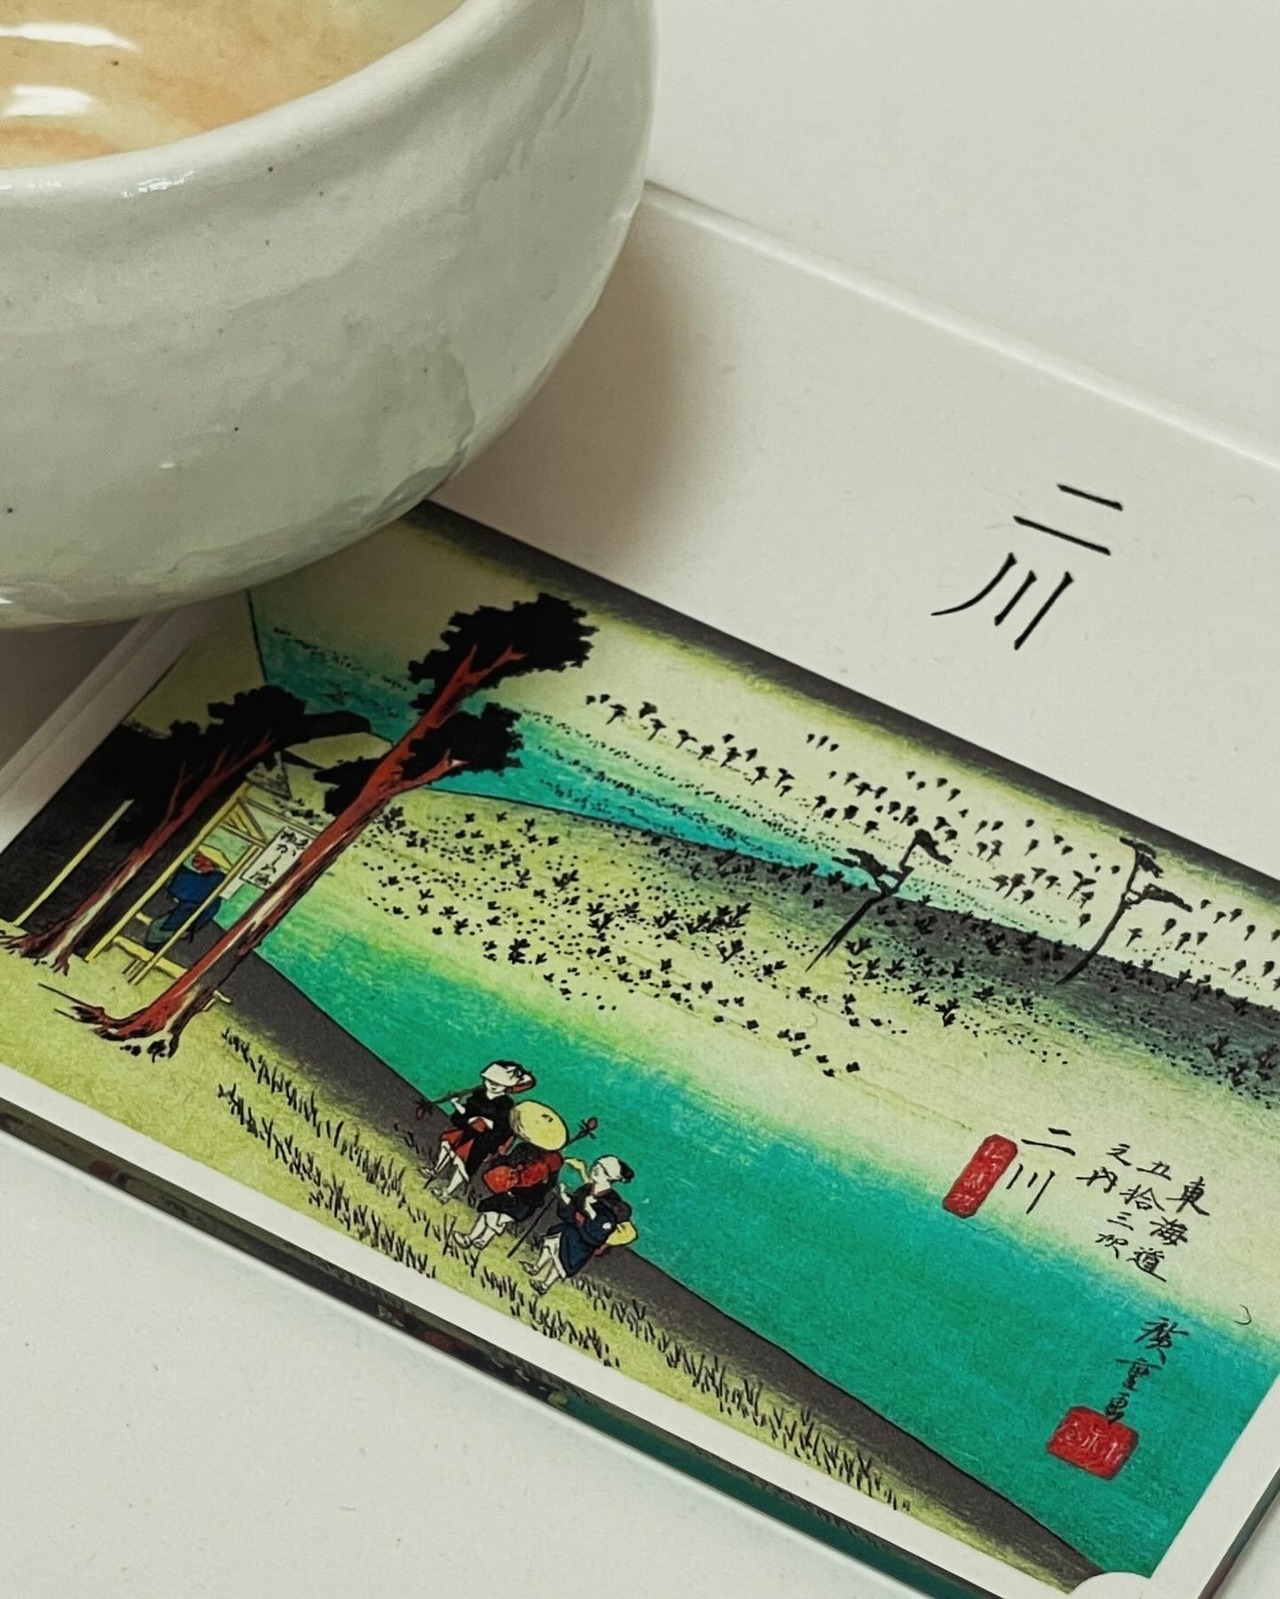 二川
東海道
五拾三次
之内
二川
廣重画